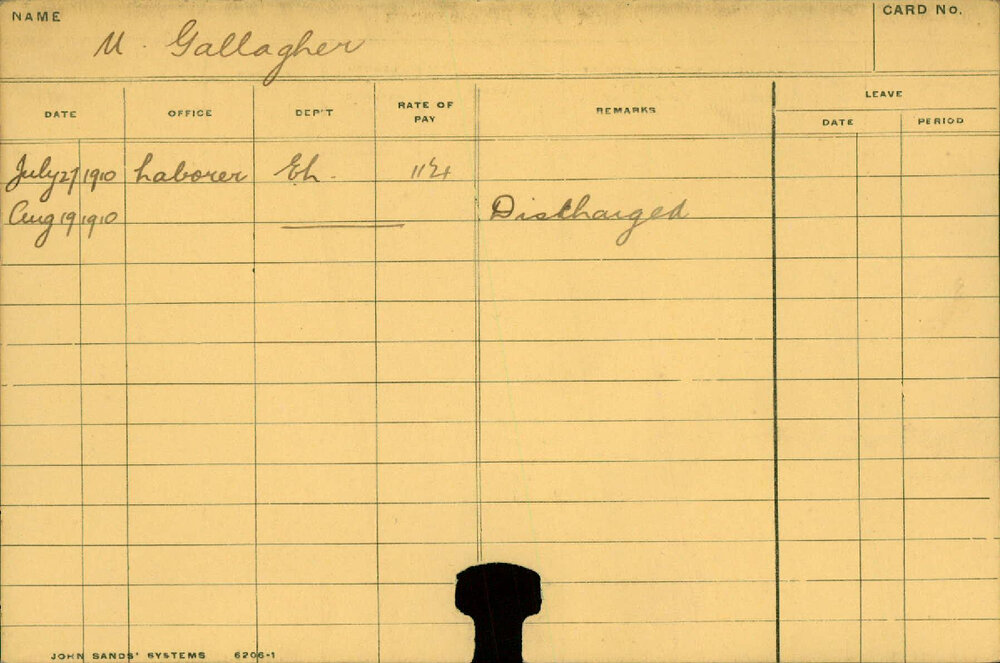 NAME
M. Gallagher
CARD No.
DATE OFFICE DEP'T RATE OF PAY REMARKS LEAVE
DATE PERIOD
July 27 1910 Laborer Eh.
Aug 19 1910 Discharged
JOHN SANDS' SYSTEMS 6206-1